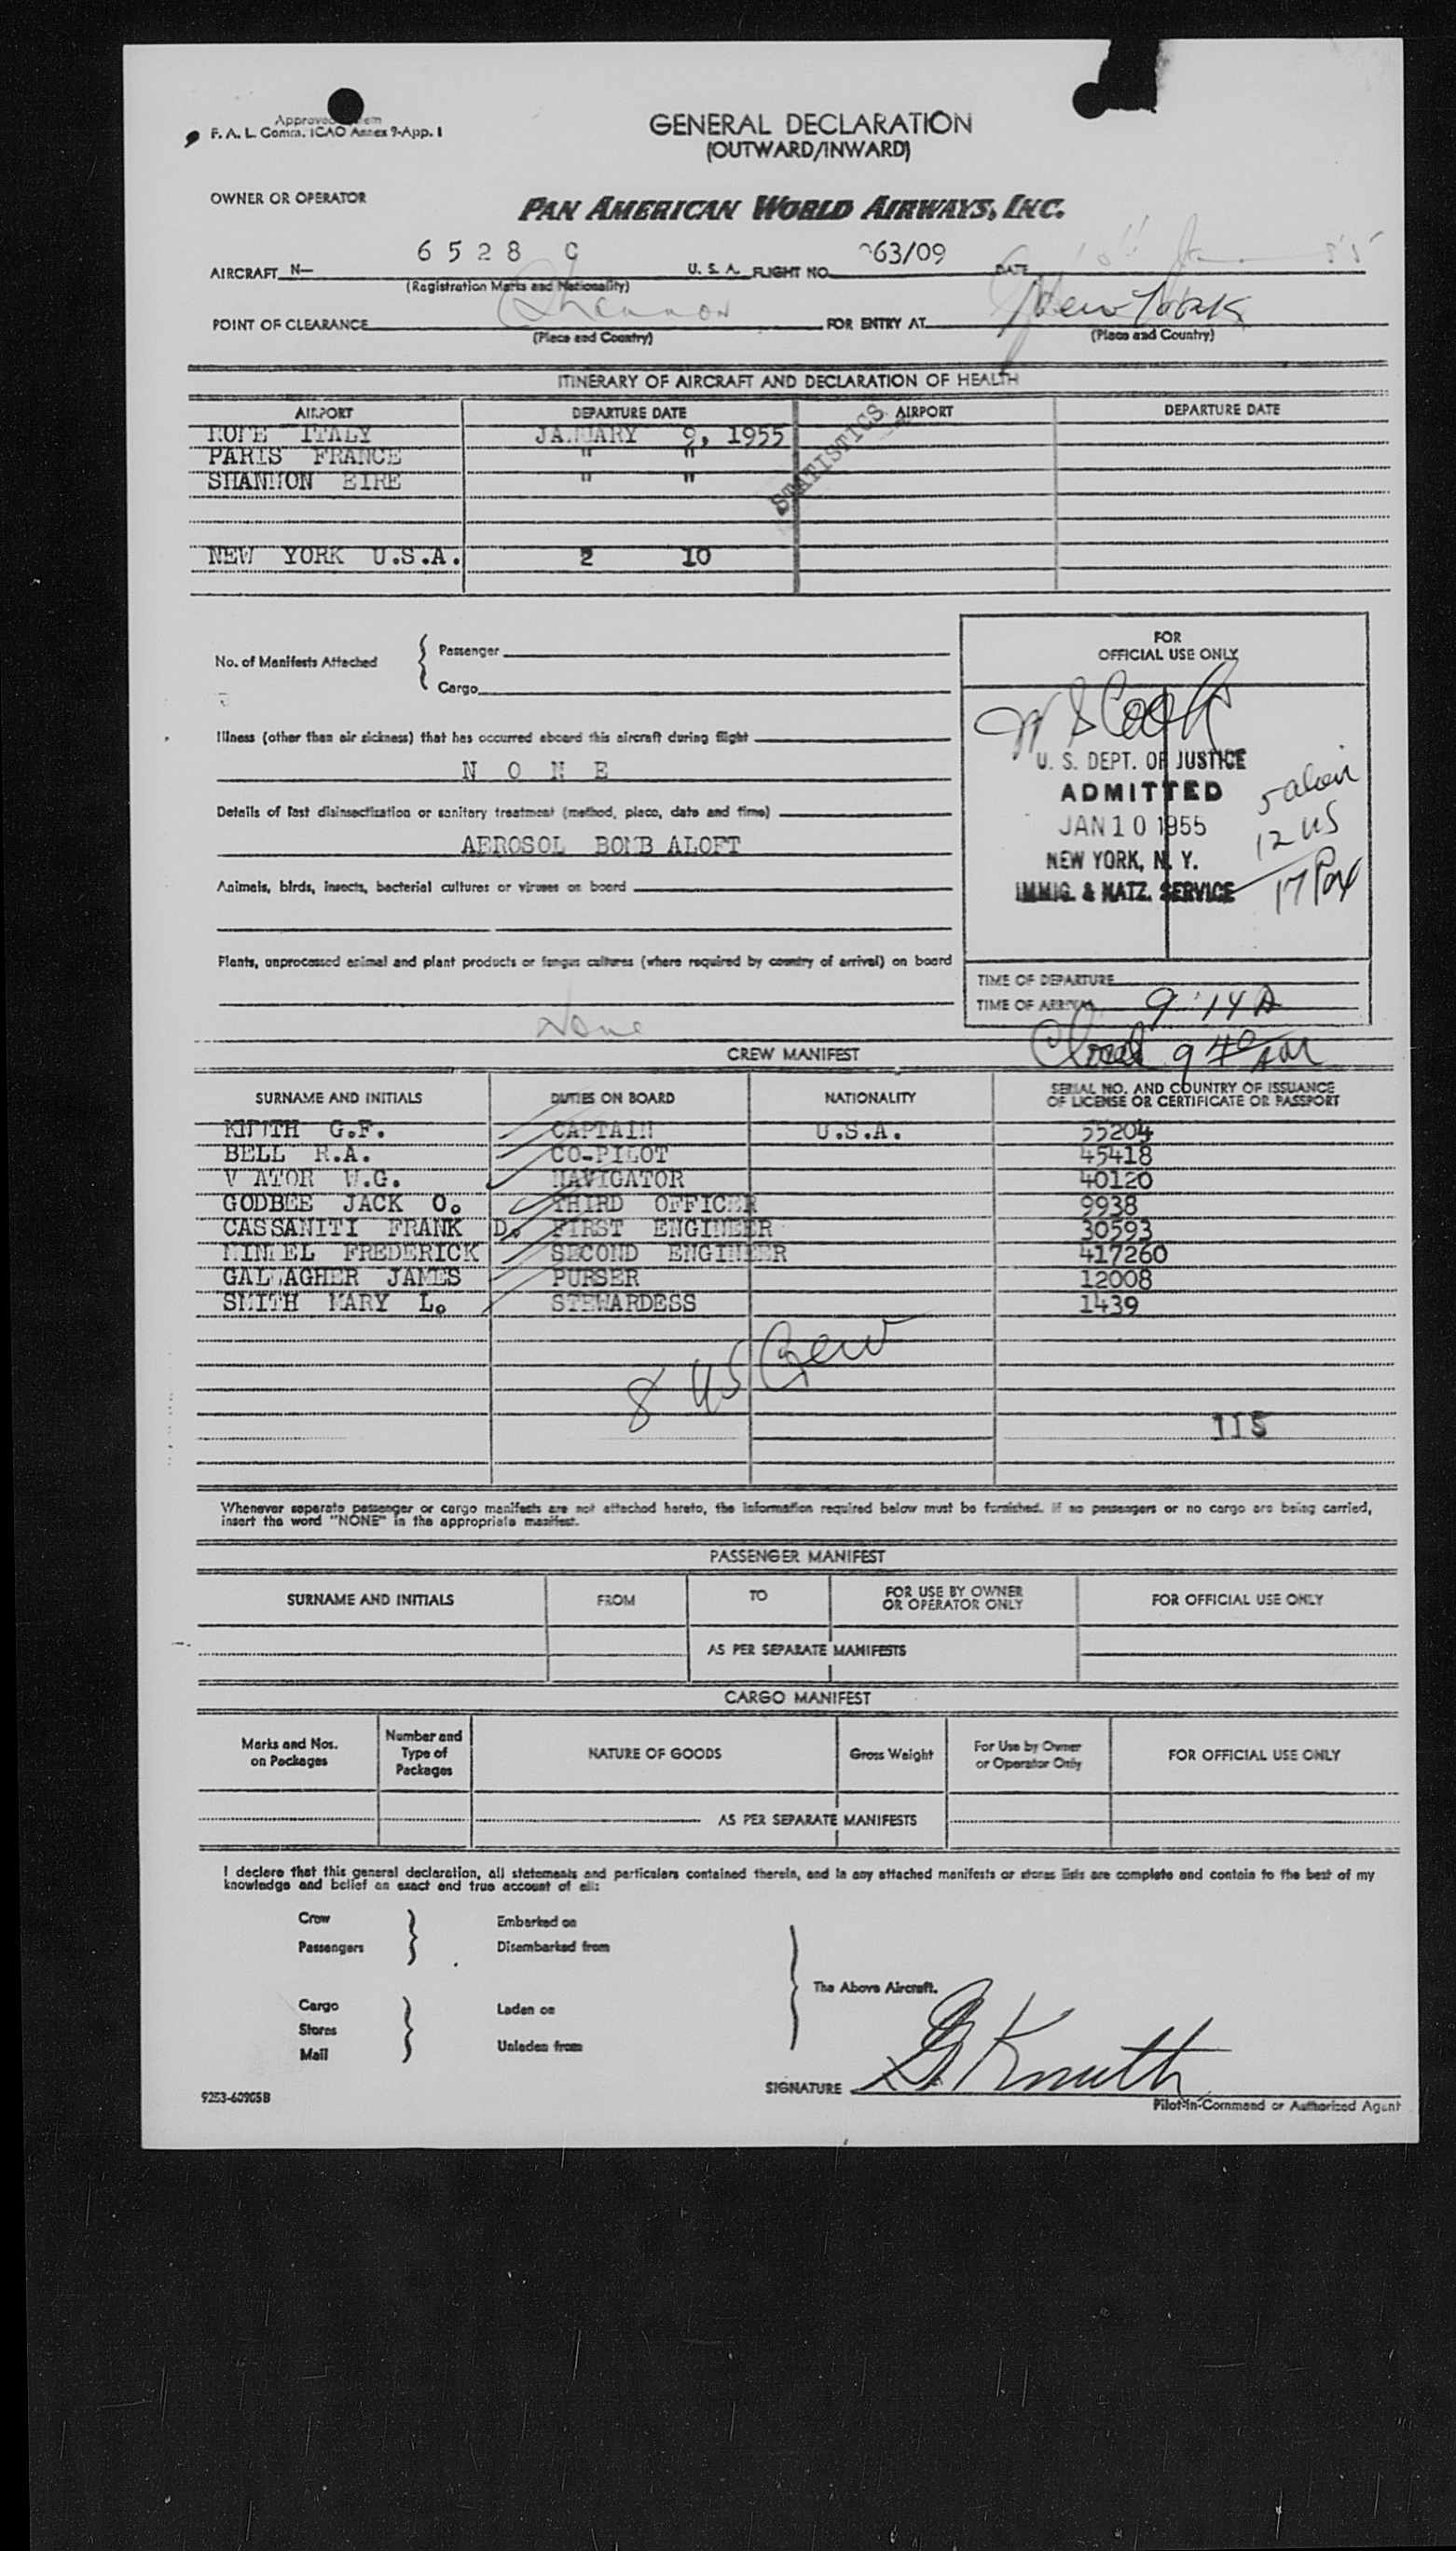 F. A. L. Comm. ICAO Annex 9-App. 1
GENERAL DECLARATION
(OUTWARD/INWARD)
OWNER OR OPERATOR
PAN AMERICAN WORLD AIRWAYS, INC.
AIRCRAFT N— 6528 C U. S. A. FLIGHT NO. 63/09 DATE
(Registration Marks and Nationality)
POINT OF CLEARANCE Shannon FOR ENTRY AT New York
(Place and Country) (Place and Country)
ITINERARY OF AIRCRAFT AND DECLARATION OF HEALTH
AIRPORT DEPARTURE DATE AIRPORT DEPARTURE DATE
ROME ITALY JANUARY 9, 1955
PARIS FRANCE " "
SHANNON EIRE " "
STATISTICS
NEW YORK U.S.A. 2 10
No. of Manifests Attached { Passenger
Cargo
FOR
OFFICIAL USE ONLY
Illness (other than air sickness) that has occurred aboard this aircraft during flight
N O N E
Details of last disinsectization or sanitary treatment (method, place, date and time)
AEROSOL BOMB ALOFT
Animals, birds, insects, bacterial cultures or viruses on board
Plants, unprocessed animal and plant products or fungus cultures (where required by country of arrival) on board
None
W S Cook
U. S. DEPT. OF JUSTICE
ADMITTED
JAN 10 1955
NEW YORK, N. Y.
IMMIG. & NATZ. SERVICE
5 alien
12 US
17 Pax
TIME OF DEPARTURE
TIME OF ARRIVAL 9:14 A
9 40 AM
CREW MANIFEST
SURNAME AND INITIALS DUTIES ON BOARD NATIONALITY SERIAL NO. AND COUNTRY OF ISSUANCE
OF LICENSE OR CERTIFICATE OR PASSPORT
KNUTH G.F. CAPTAIN U.S.A. 55204
BELL R.A. CO-PILOT 45418
W.G. NAVIGATOR 40120
GODBEE JACK O. THIRD OFFICER 9938
CASSANITI FRANK D. FIRST ENGINEER 30593
FREDERICK SECOND ENGINEER 417260
GALLAGHER JAMES PURSER 12008
SMITH MARY L. STEWARDESS 1439
8 US Crew
115
Whenever separate passenger or cargo manifests are not attached hereto, the information required below must be furnished. If no passengers or no cargo are being carried,
insert the word "NONE" in the appropriate manifest.
PASSENGER MANIFEST
SURNAME AND INITIALS FROM TO FOR USE BY OWNER OR OPERATOR ONLY FOR OFFICIAL USE ONLY
AS PER SEPARATE MANIFESTS
CARGO MANIFEST
Marks and Nos. on Packages Number and Type of Packages NATURE OF GOODS Gross Weight For Use by Owner or Operator Only FOR OFFICIAL USE ONLY
AS PER SEPARATE MANIFESTS
I declare that this general declaration, all statements and particulars contained therein, and in any attached manifests or stores lists are complete and contain to the best of my
knowledge and belief an exact and true account of all:
Crew Embarked on
Passengers Disembarked from
The Above Aircraft.
Cargo Laden on
Stores
Mail Unladen from
SIGNATURE G. Knuth
9253-60905B Pilot-in-Command or Authorized Agent